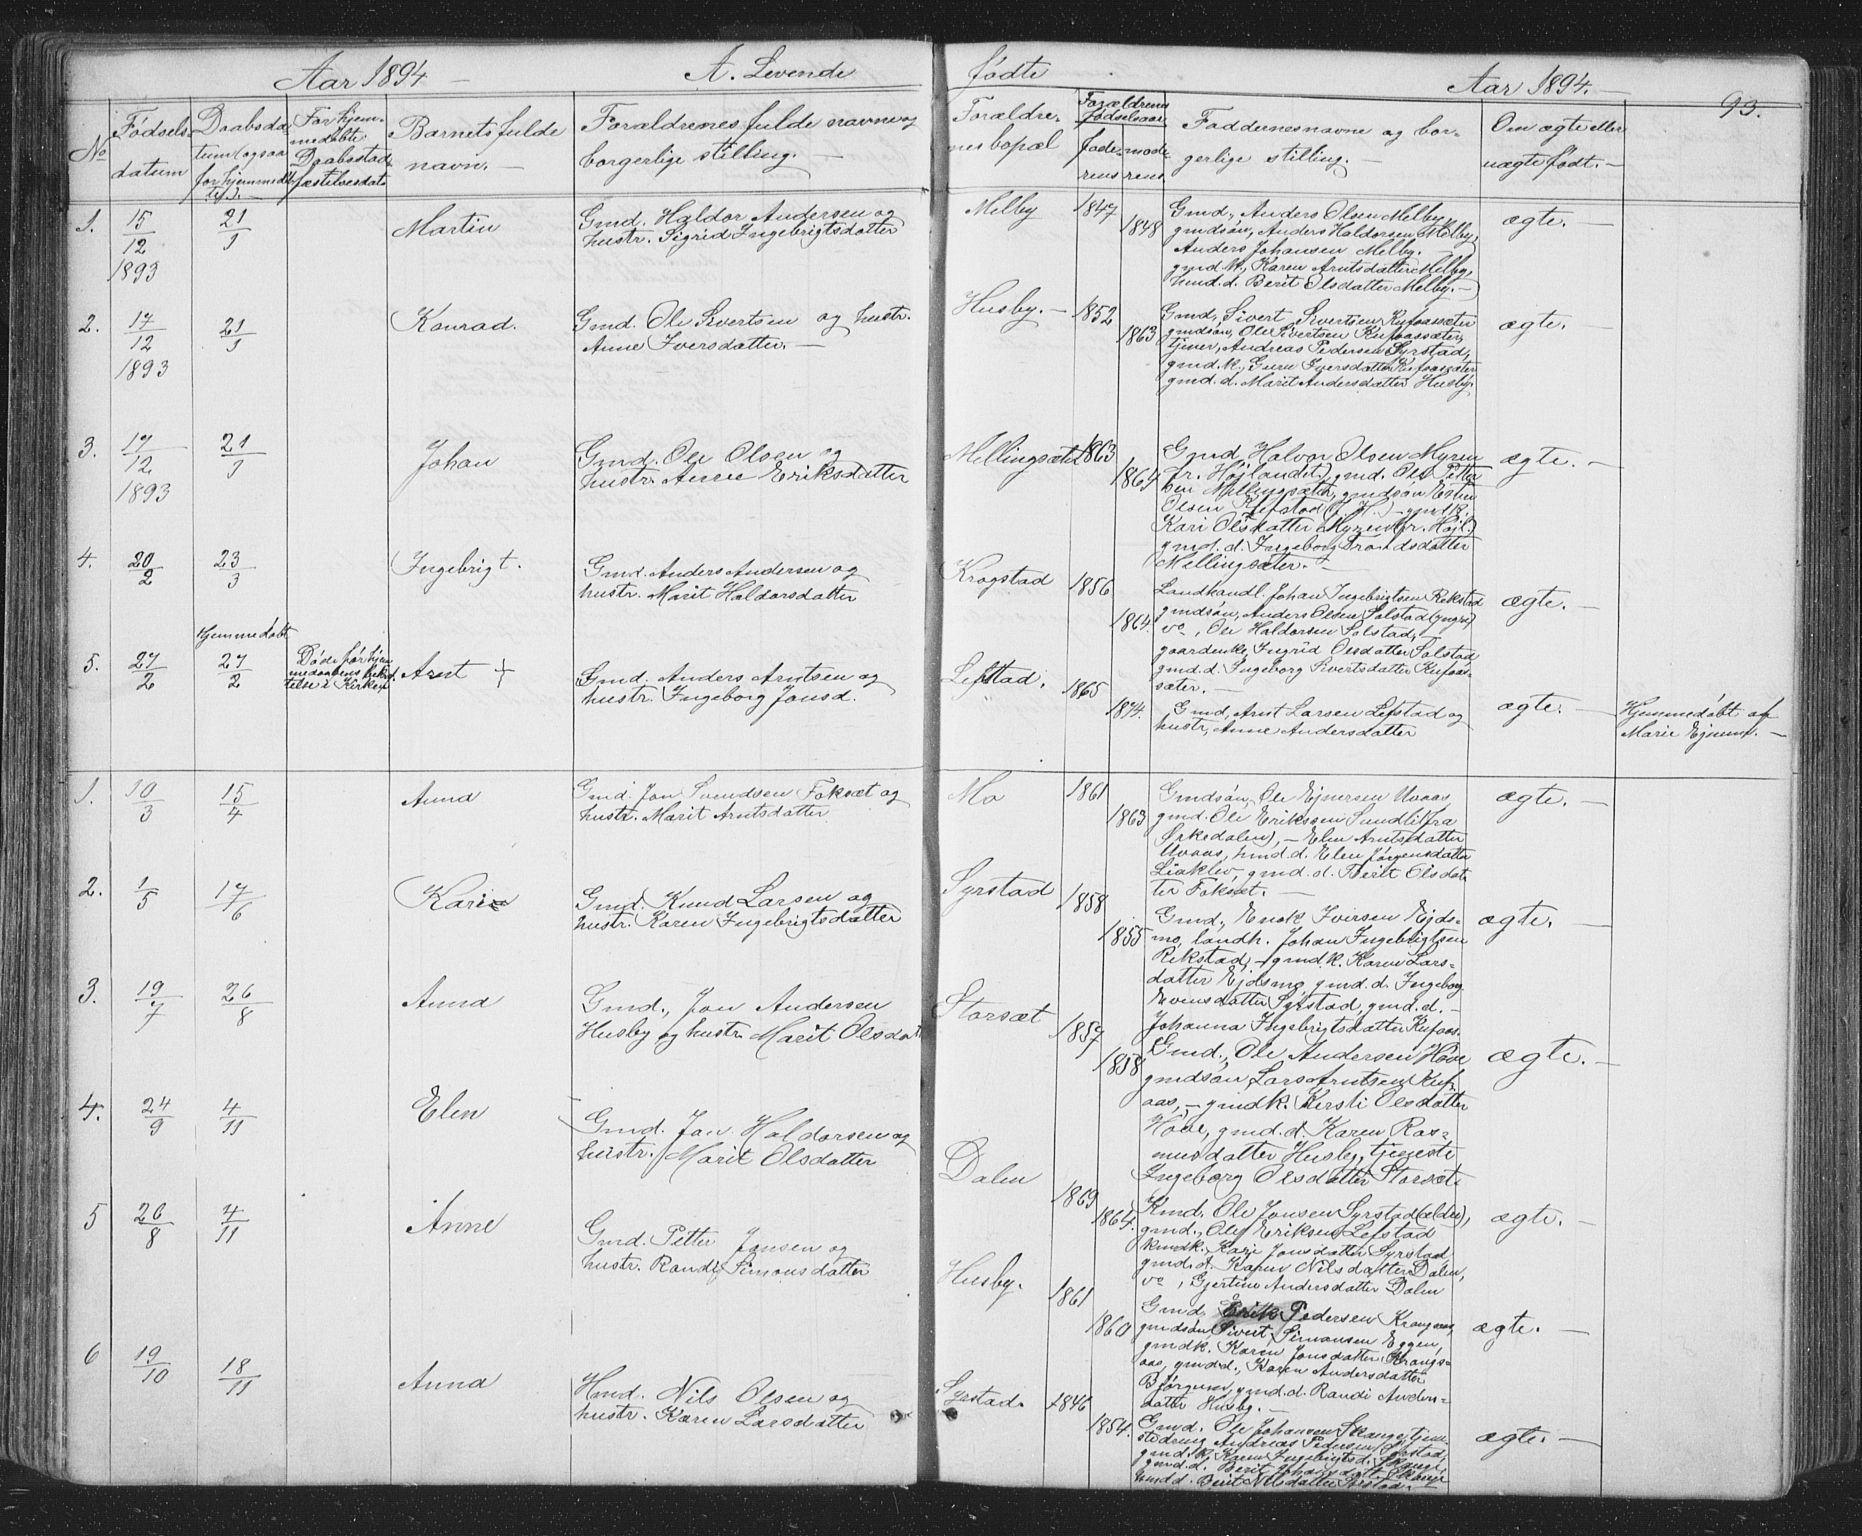 Aar 1894 —
A. Levende
No
Fødsels-
datum
Daabsda
tum (ogsaa
for hjemmedøb
te). —
For hjem-
medøbte
Daabsstad-
fæstelsesdat.
Barnets fulde
navn. —
Forældrenes fulde navne og
borgerlige stilling. —
1.
15
12
1893
21
1
Martin
Gmd. Haldor Andersen og
hustr. Sigrid Ingebrigtsdatter
2.
17
12
1893
21
1
Konrad.
Gmd. Ole Sivertsen og hustr.
Anne Iversdatter. —
3.
17
12
1893
21
1
Johan
Gmd. Ole Olsen og
hustr. Anne Eriksdatter
4.
20
2
23
3
Ingebrigt.
Gmd. Anders Andersen og
hustr. Marit Haldorsdatter
5.
27
2
Hjemmedøbt
27
2
Døde før hjem
medaabens bekræf
telse i Kirken
Arnt +
Gmd. Anders Arntsen og
hustr. Ingeborg Jonsd.
1.
10
3
15
4
Anna
Gmd. Jon Svendsen Foksæt og
hustr. Marit Arntsdatter
2.
1
5
17
6
Kari
Gmd. Knud Larsen og
hustr. Karen Ingebrigtsdatter
3.
19
7
26
8
Anna
Gmd., Jon Andersen
Husby og hustr. Marit Olsdat
4.
24
9
4
11
Elen
Gmd. Jon Haldorsen og
hustr. Marit Olsdatter
5
26
8
4
11
Anne
Gmd. Petter Jonsen og
hustr. Randi Simonsdatter
6
19
10
18
11
Anna
Hmd. Nils Olsen og
hustr. Karen Larsdatter
fødte
Aar 1894. —
93.
Forældre-
nes bopæl
Forældrenes
fødselsaar
fade-
rens
mode-
rens.
Faddernes navne og bor-
gerlige stilling. —
Om ægte eller
uægte født. —
Melby
1847
1848
Gmd., Anders Olsen Melby
gmdsøn, Anders Haldorsen Melby,
Anders Johansen Melby.
gmd.k., Karen Arntsdatter Melby,
hmd.d. Berit Olsdatter Melby. —
ægte. —
Husby. —
1852
1863
Gmd., Sivert Sivertsen Kufaassæter
gmdsøn, Ole Sivertsen Kufaassæter,
tjener, Andreas Pedersen Syrstad,
gmd.k., Guru Iversdatter Kufaassæter
gmd.d. Marit Andersdatter Husby.
ægte. —
Mellingsæter
1863
1864
Gmd. Halvor Olsen Myren
(fr. Højlandet), gmd. Ole Petter
sen Mellingsæter, gmdsøn Esten
Olsen Lefstad
Kari Olsdatter Myren (fr. Højl.)
gmd.d. Ingeborg Trondsdatter
Mellingsæter. —
ægte. —
Krogstad
1856
1864.
Landhandl. Johan Ingebrigtsen Rikstad
gmdsøn, Anders Olsen Solstad (yngre)
vo, Ole Haldorsen Solstad, —
gaardenke Ingrid Olsdatter Solstad
gmd.d. Ingeborg Sivertsdatter Kufaas-
sæter. —
ægte. —
Lefstad.
1865
1874.
Gmd, Arnt Larsen Lefstad og
hustr, Anne Andersdatter
ægte. —
Hjemmedøbt af
Marie Ejnum. —
Mo
1861
1863
Gmdsøn, Ole Ejnersen Uvaas
gmd. Ole Eriksen Sundli (fra
Orkedalen), — Elen Arntsdatter
Uvaas, hmd.d. Elen Jørgensdatter
Liaklev, gmd.d. Berit Olsdat-
ter Foksæt. —
ægte. —
Syrstad
1858
1855
Gmd., Enok Iversen Ejds-
mo, landh. Johan Ingebrigtsen
Rikstad, — gmd.k. Karen Lars-
datter Ejdsmo, gmd.d. Ingeborg
Evensdatter Syrstad, gmd.d. —
Johanna Ingebrigtsdatter Kufaas.
ægte. —
Storsæt
1857
1858
Gmd., Ole Andersen Hove
gmdsøn Lars Arntsen Kuf-
aas, — gmdk. Kersti Olsdatter
Hove, gmd.d. Karen Ras-
musdatter Husby, tjeneste
Ingeborg Olsdatter Storsæt.
ægte. —
Dalen
1869
1864.
Kmd. Ole Jonsen Syrstad (ældre),
gmd., Ole Eriksen Lefstad
kmdk. Kari Jonsdatter Syrstad
gmd.d. Karen Nilsdatter Dalen,
vo, Gjertine Andersdatter Dalen
ægte. —
Husby.
1861
1860
Gmd. Erik Pedersen Krangsaas,
gmdsøn Sivert Simonsen Eggen,
gmdk. Karen Jonsdatter Krangs-
aas, gmd.d., Karen Andersdatter
Bjørgum, gmd.d. Randi Anders-
datter Husby. —
ægte. —
Syrstad.
1846
1854.
Gmd. Ole Johansen
Andreas Pedersen Syrstad,
gmd.k. Karen Ingebrigtsd.
gmd.d. Berit Johansdatter
hmdd. Berit Nilsdatter Syrstad. —
ægte. —